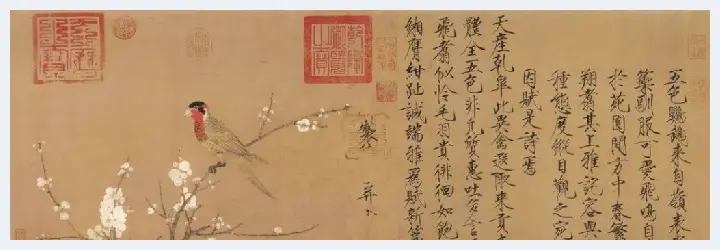 五色鸚鵡來自嶺表
籞馴服可愛飛鳴自
於苑囿間方中春繁
翔翥其上雅詫容與
種態度縱目觀之宛
因賦是詩焉
天產乾皋此異禽遐陬來貢
體全五色非凡質惠吐多言
飛翥似憐毛羽貴徘徊如飽
緗膺紺趾誠端雅為賦新篇
製
并書